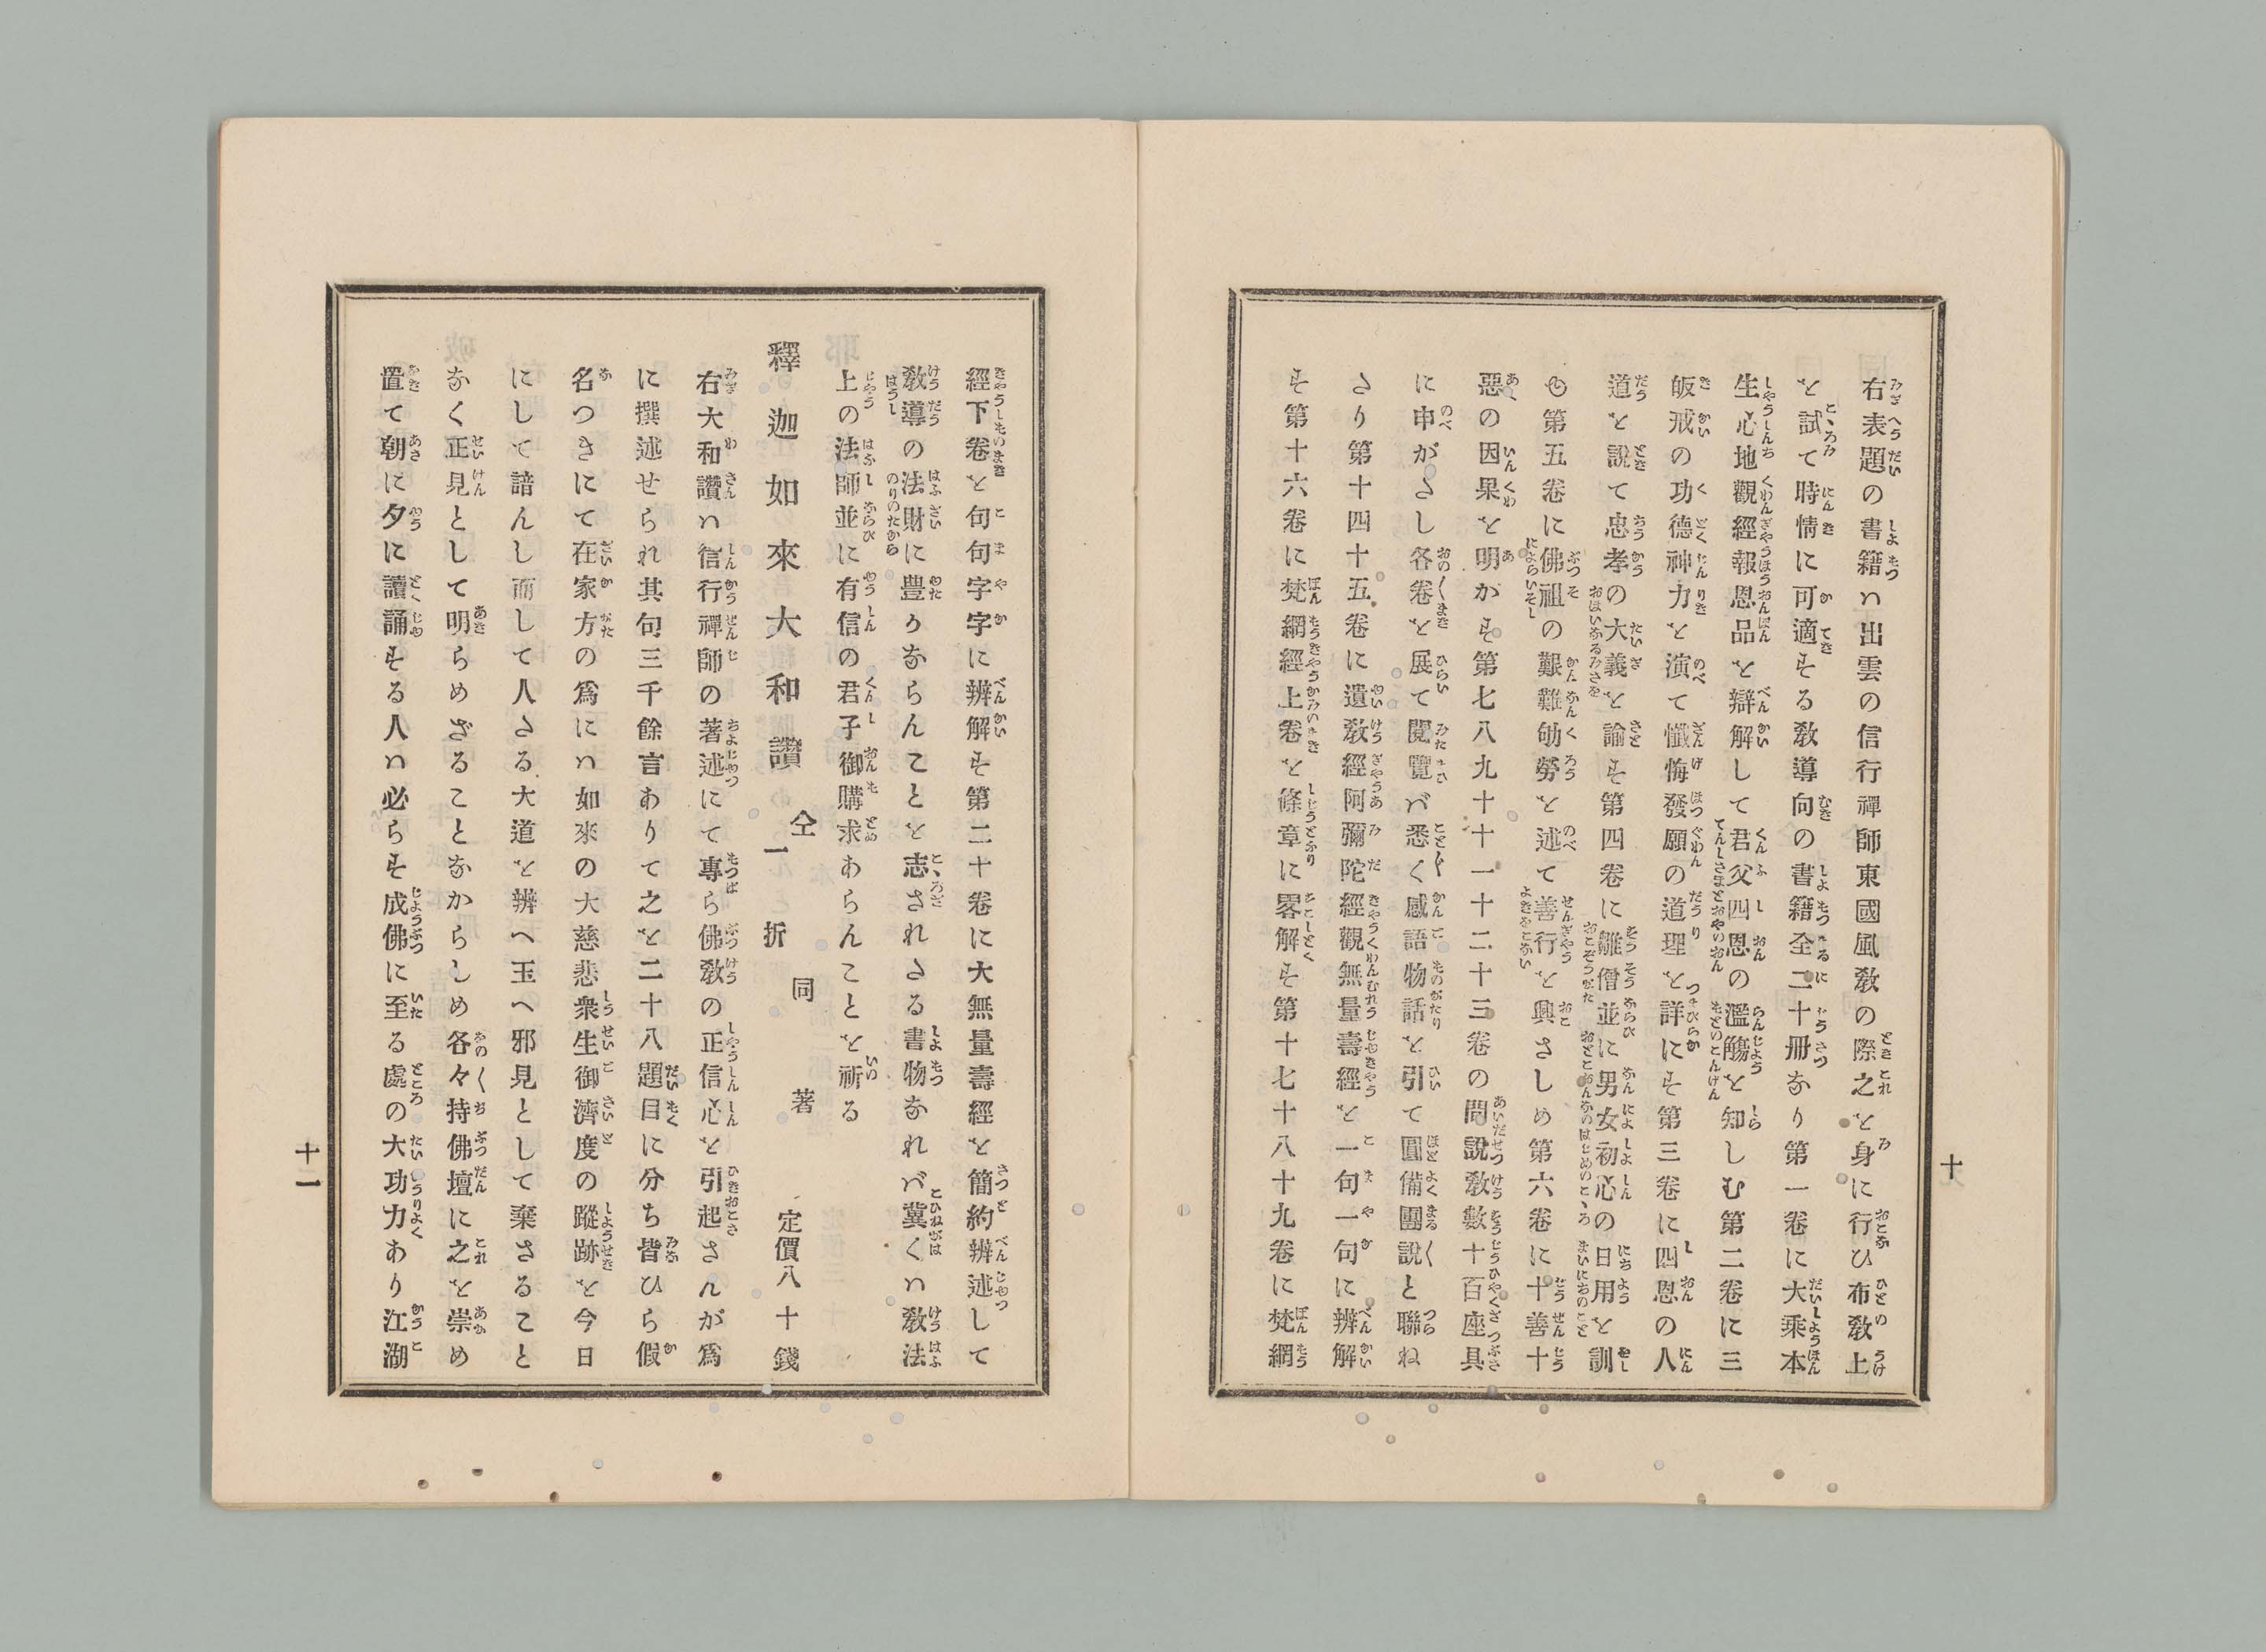 右表題の書籍ハ出雲の信行禪師東國風敎の際之を身に行ひ布敎上
を試て時情に可適する敎導向の書籍全二十冊なり第一卷に大乘本
生心地觀經報恩品を辯解して君父四恩の濫觴を知しむ第二卷に三
皈戒の功德神力を演て懺悔發願の道理を詳にす第三卷に四恩の人
道を說て忠孝の大義を諭す第四卷に雛僧並に男女初心の日用を訓
め第五卷に佛祖の艱難劬勞を述て善行を興さしめ第六卷に十善十
惡の因果を明かす第七八九十十一十二十三卷の間說敎數十百座具
に申がさし各卷を展て閱覽バ悉く感語物話を引て圓備團說と聯ね
さり第十四十五卷に遺敎經阿彌陀經觀無量壽經を一句一句に辨解
す第十六卷に梵網經上卷を條章に畧解す第十七十八十九卷に梵網
十
經下卷を句句字字に辨解す第二十卷に大無量壽經を簡約辨述して
敎導の法財に豊うならんことを志されさる書物なれバ冀くハ敎法
上の法師並に有信の君子御購求あらんことを祈る
釋迦如來大和讚 全一折 同著 定價八十錢
右大和讚ハ信行禪師の著述にて專ら佛敎の正信心を引起さんが爲
に撰述せられ其句三千餘言ありて之を二十八題目に分ち皆ひら假
名つきにて在家方の爲にハ如來の大慈悲衆生御濟度の蹤跡を今日
にして諳んし而して人さる大道を辨へ玉へ邪見として棄さること
なく正見として明らめざることなからしめ各々持佛壇に之を崇め
置て朝に夕に讀誦する人ハ必らす成佛に至る處の大功力あり江湖
十一